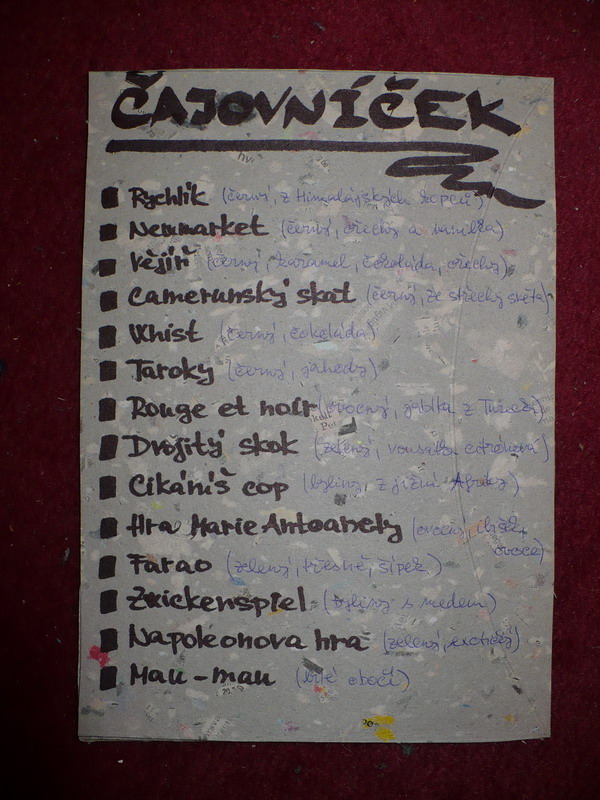 ČAJOVNÍČEK
Rychlík (černý, z Himalájských kopců)
Newmarket (černý, ořechy a vanilka)
Vějíř (černý, karamel, čokoláda, ořechy)
Camerunský skat (černý, ze střechy světa)
Whist (černý, čokoláda)
Taroky (černý, jahody)
Rouge et noir (ovocný, jablka z Turecka)
Dvojitý skok (zelený, voňatka citrónová)
Cikániš cop (byliny z jižní Afriky)
Hra Marie Antoanety (ovocný,
ovoce)
Farao (zelený, třešně, šípek)
Zwickenspiel (byliny s medem)
Napoleonova hra (zelený, exotický)
Mau-mau (bílé obočí)